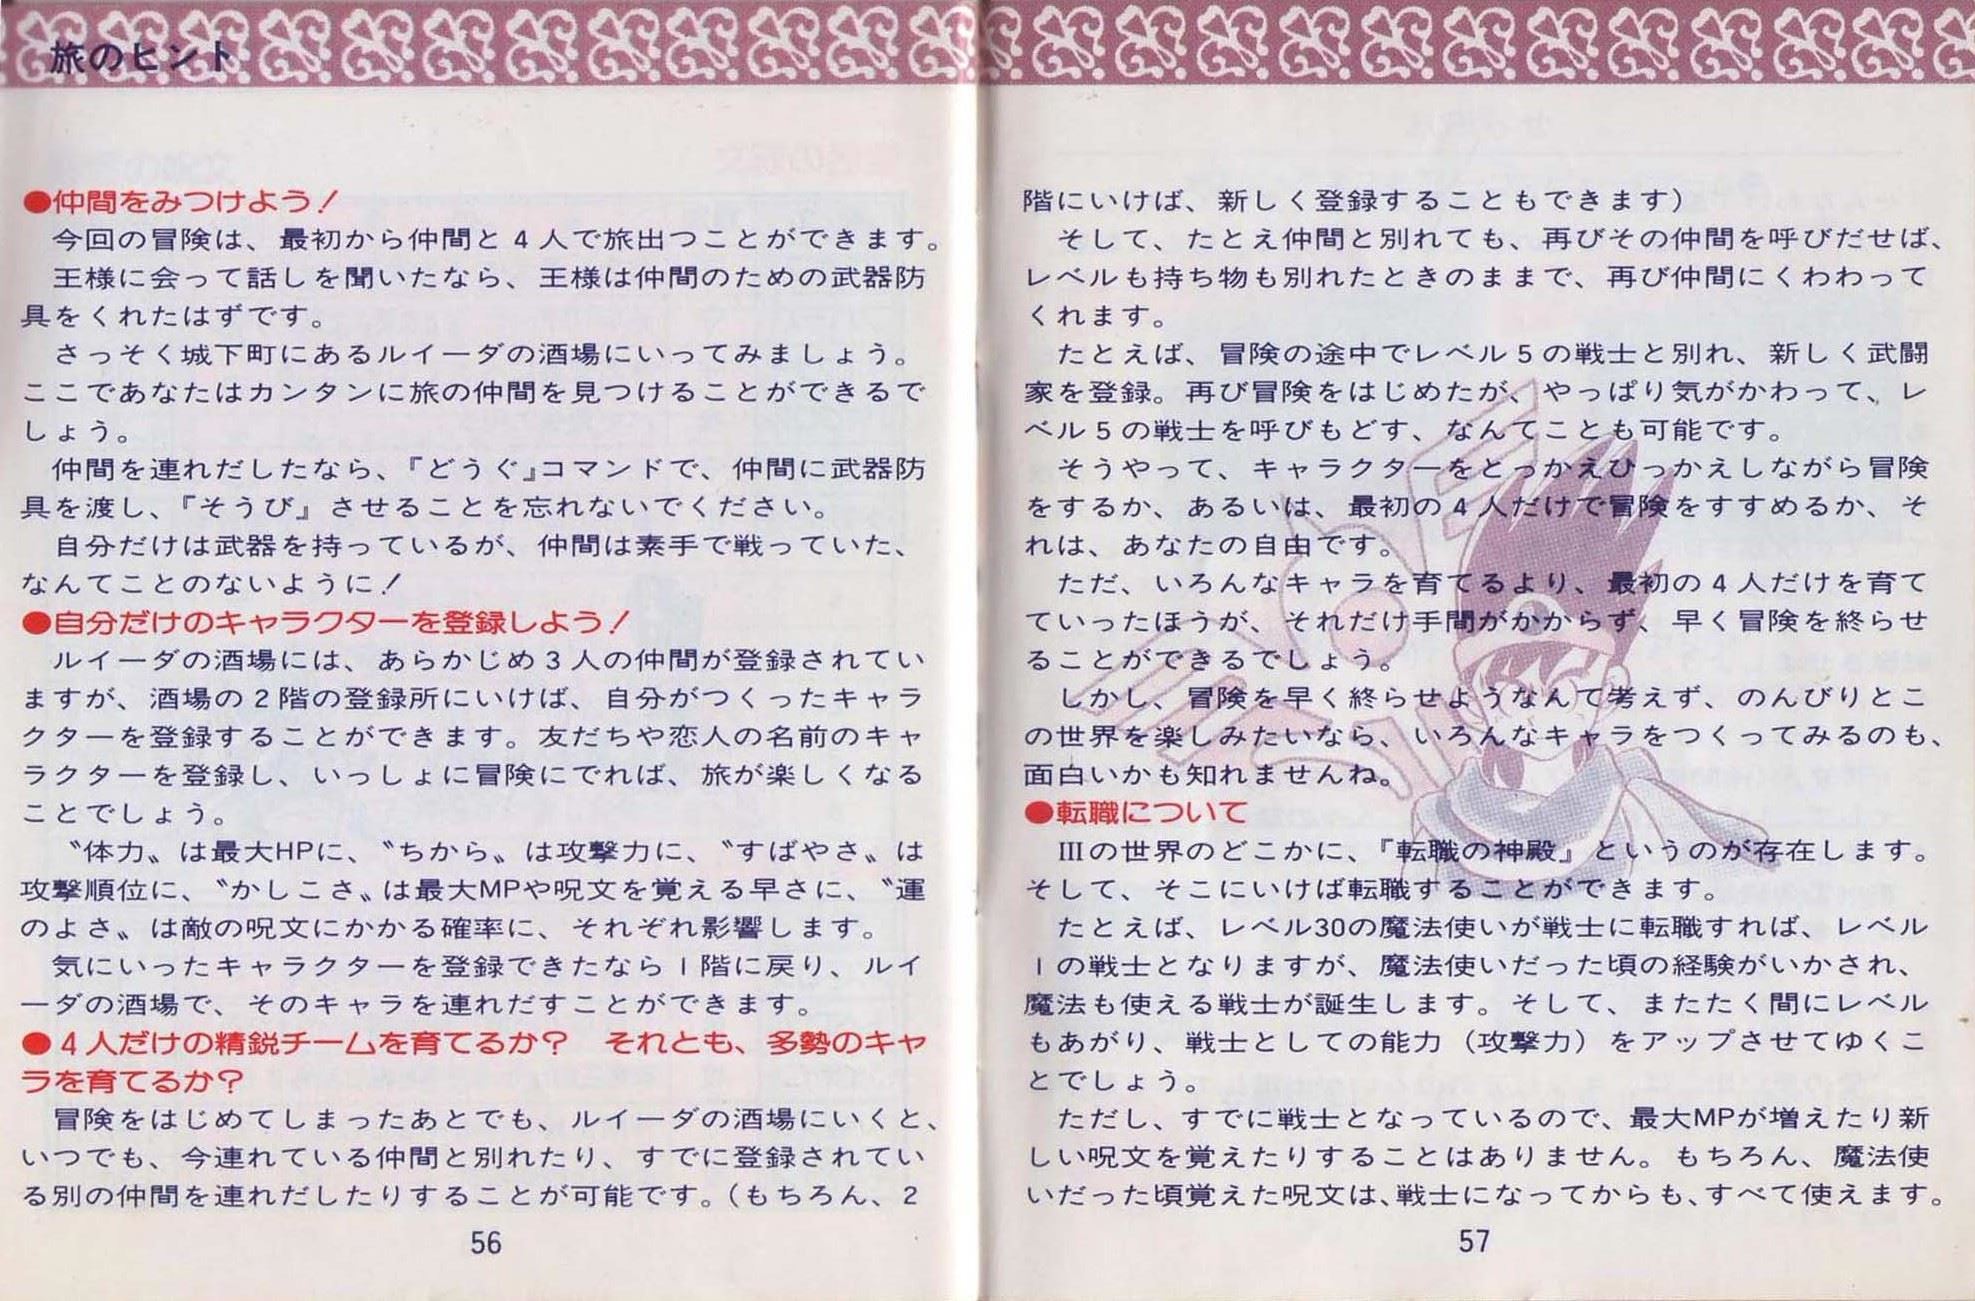 旅のヒント
●仲間をみつけよう！
今回の冒険は、最初から仲間と４人で旅出つことができます。
王様に会って話しを聞いたなら、王様は仲間のための武器防
具をくれたはずです。
さっそく城下町にあるルイーダの酒場にいってみましょう。
ここであなたはカンタンに旅の仲間を見つけることができるで
しょう。
仲間を連れだしたなら、『どうぐ』コマンドで、仲間に武器防
具を渡し、『そうび』させることを忘れないでください。
自分だけは武器を持っているが、仲間は素手で戦っていた、
なんてことのないように！
●自分だけのキャラクターを登録しよう！
ルイーダの酒場には、あらかじめ３人の仲間が登録されてい
ますが、酒場の２階の登録所にいけば、自分がつくったキャラ
クターを登録することができます。友だちや恋人の名前のキャ
ラクターを登録し、いっしょに冒険にでれば、旅が楽しくなる
ことでしょう。
〝体力〟は最大HPに、〝ちから〟は攻撃力に、〝すばやさ〟は
攻撃順位に、〝かしこさ〟は最大MPや呪文を覚える早さに、〝運
のよさ〟は敵の呪文にかかる確率に、それぞれ影響します。
気にいったキャラクターを登録できたなら１階に戻り、ルイ
ーダの酒場で、そのキャラを連れだすことができます。
●４人だけの精鋭チームを育てるか？　それとも、多勢のキャ
ラを育てるか？
冒険をはじめてしまったあとでも、ルイーダの酒場にいくと、
いつでも、今連れている仲間と別れたり、すでに登録されてい
る別の仲間を連れだしたりすることが可能です。（もちろん、２
56
階にいけば、新しく登録することもできます）
そして、たとえ仲間と別れても、再びその仲間を呼びだせば、
レベルも持ち物も別れたときのままで、再び仲間にくわわって
くれます。
たとえば、冒険の途中でレベル５の戦士と別れ、新しく武闘
家を登録。再び冒険をはじめたが、やっぱり気がかわって、レ
ベル５の戦士を呼びもどす、なんてことも可能です。
そうやって、キャラクターをとっかえひっかえしながら冒険
をするか、あるいは、最初の４人だけで冒険をすすめるか、そ
れは、あなたの自由です。
ただ、いろんなキャラを育てるより、最初の４人だけを育て
ていったほうが、それだけ手間がかからず、早く冒険を終らせ
ることができるでしょう。
しかし、冒険を早く終らせようなんて考えず、のんびりとこ
の世界を楽しみたいなら、いろんなキャラをつくってみるのも、
面白いかも知れませんね。
●転職について
Ⅲの世界のどこかに、『転職の神殿』というのが存在します。
そして、そこにいけば転職することができます。
たとえば、レベル30の魔法使いが戦士に転職すれば、レベル
１の戦士となりますが、魔法使いだった頃の経験がいかされ、
魔法も使える戦士が誕生します。そして、またたく間にレベル
もあがり、戦士としての能力（攻撃力）をアップさせてゆくこ
とでしょう。
ただし、すでに戦士となっているので、最大MPが増えたり新
しい呪文を覚えたりすることはありません。もちろん、魔法使
いだった頃覚えた呪文は、戦士になってからも、すべて使えます。
57